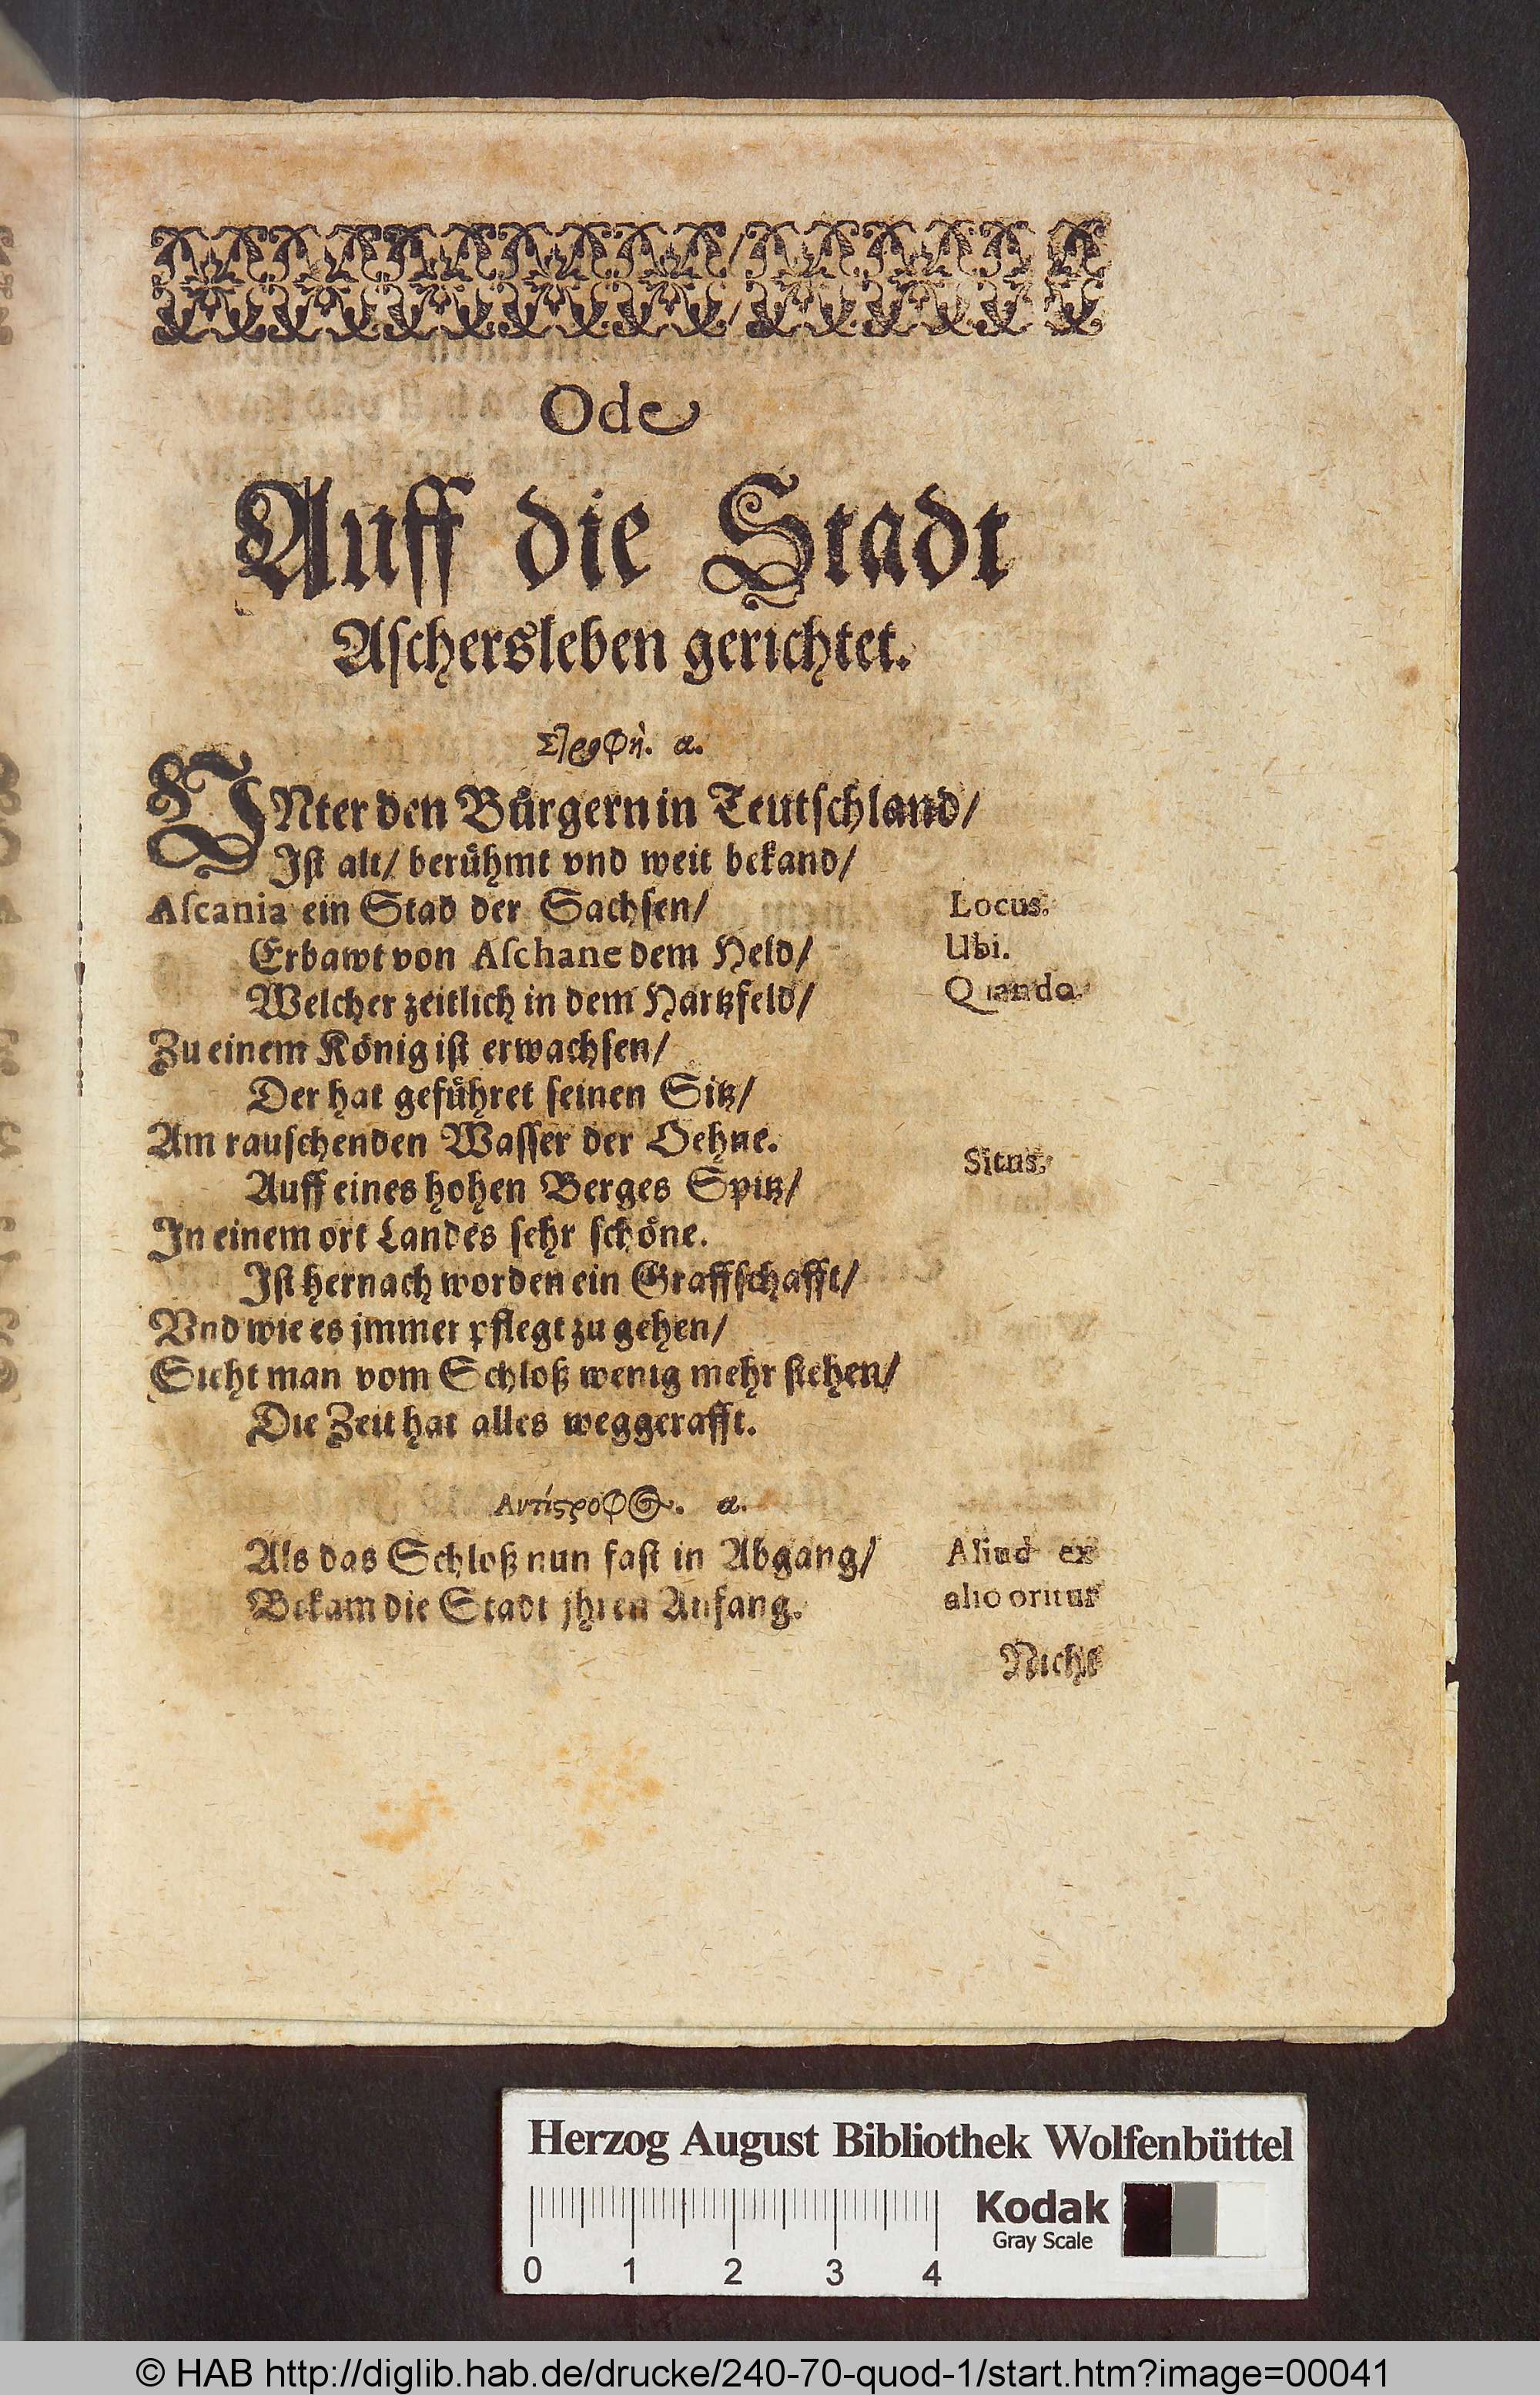 Ode
Auff die Stadt
Aſchersleben gerichtet.
Στροφὴ. α.
VNter den Bürgern in Teutſchland/
Iſt alt/ berühmt vnd weit bekand/
Aſcania ein Stad der Sachſen/
Locus.
Erbawt von Aſchane dem Held/
Ubi.
Welcher zeitlich in dem Hartzfeld/
Quando
Zu einem König iſt erwachſen/
Der hat geführet ſeinen Sitz/
Am rauſchenden Waſſer der Oehne.
Situs.
Auff eines hohen Berges Spitz/
In einem ort Landes ſehr ſchöne.
Iſt hernach worden ein Graffſchafft/
Vnd wie es jmmer pflegt zu gehen/
Sieht man vom Schloß wenig mehr ſtehen/
Die Zeit hat alles weggerafft.
Αντίϛροφος. α.
Als das Schloß nun faſt in Abgang/
Aliud ex
Bekam die Stadt jhren Anfang.
alio oritur
Nicht
Herzog August Bibliothek Wolfenbüttel
Kodak
Gray Scale
0 1 2 3 4
© HAB http://diglib.hab.de/drucke/240-70-quod-1/start.htm?image=00041